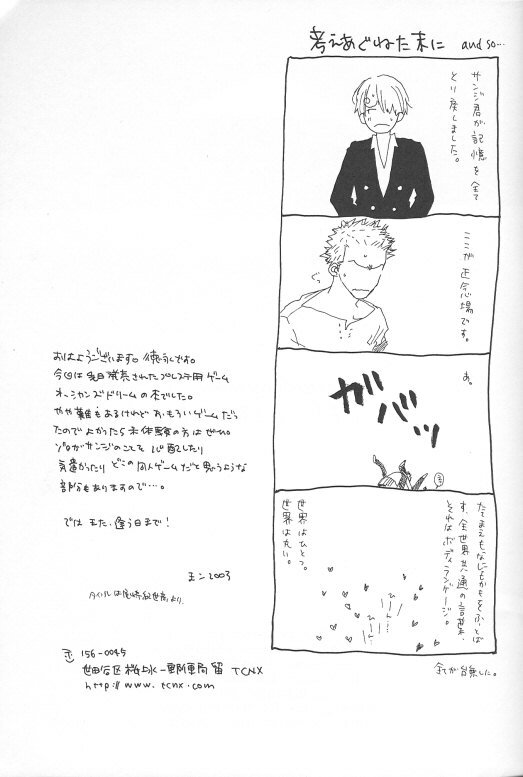 考えあぐねた末に and so…
サンジ君が記憶を全て
とり戻しました。
ここが正念場です。
ぐっ
あ。
ガバッ
たてまえもなにもかもをふっとば
す、全世界共通の言葉、
それはボディランゲージ。
世界はひとつ。
世界は丸い。
全てが台無しだ。
おはようございます。
今回は先日発売されたプレステ用ゲーム
オーシャンズドリームの本でした。
やや難もあるけれどおもろいゲームだっ
たのでよかったら未体験の方はぜひ。
ゾロがサンジのことを心配したり
気遣ったりどこの同人ゲームだと思うような
部分もありますので…。
では また、逢う日まで！
王ン2003
タイトルは尾崎紀世彦より。
〒156-0045
世田谷区桜上水一郵便局留 TCNX
http://www.tcnx.com